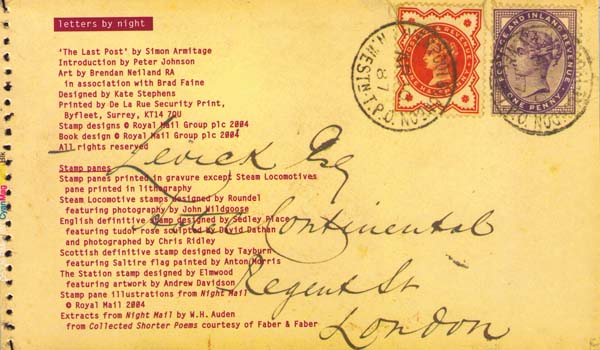 letters by night
'The Last Post' by Simon Armitage
Introduction by Peter Johnson
Art by Brendan Neiland RA
in association with Brad Faine
Designed by Kate Stephens
Printed by De La Rue Security Print,
Byfleet, Surrey, KT14 7QU
Stamp designs © Royal Mail Group plc 2004
Book design © Royal Mail Group plc 2004
All rights reserved
Stamp panes
Stamp panes printed in gravure except Steam Locomotives
pane printed in lithography
Steam Locomotive stamps designed by Roundel
featuring photography by John Wildgoose
English definitive stamp designed by Sedley Place
featuring tudor rose sculpted by David Dathan
and photographed by Chris Ridley
Scottish definitive stamp designed by Tayburn
featuring Saltire flag painted by Anton Morris
The Station stamp designed by Elmwood
featuring artwork by Andrew Davidson
Stamp pane illustrations from Night Mail
© Royal Mail 2004
Extracts from Night Mail by W.H. Auden
from Collected Shorter Poems courtesy of Faber & Faber
Levick Esq
Continental
Regent St
London
POSTAGE AND INLAND REVENUE
ONE PENNY
87
Cyan
Mag
Blk